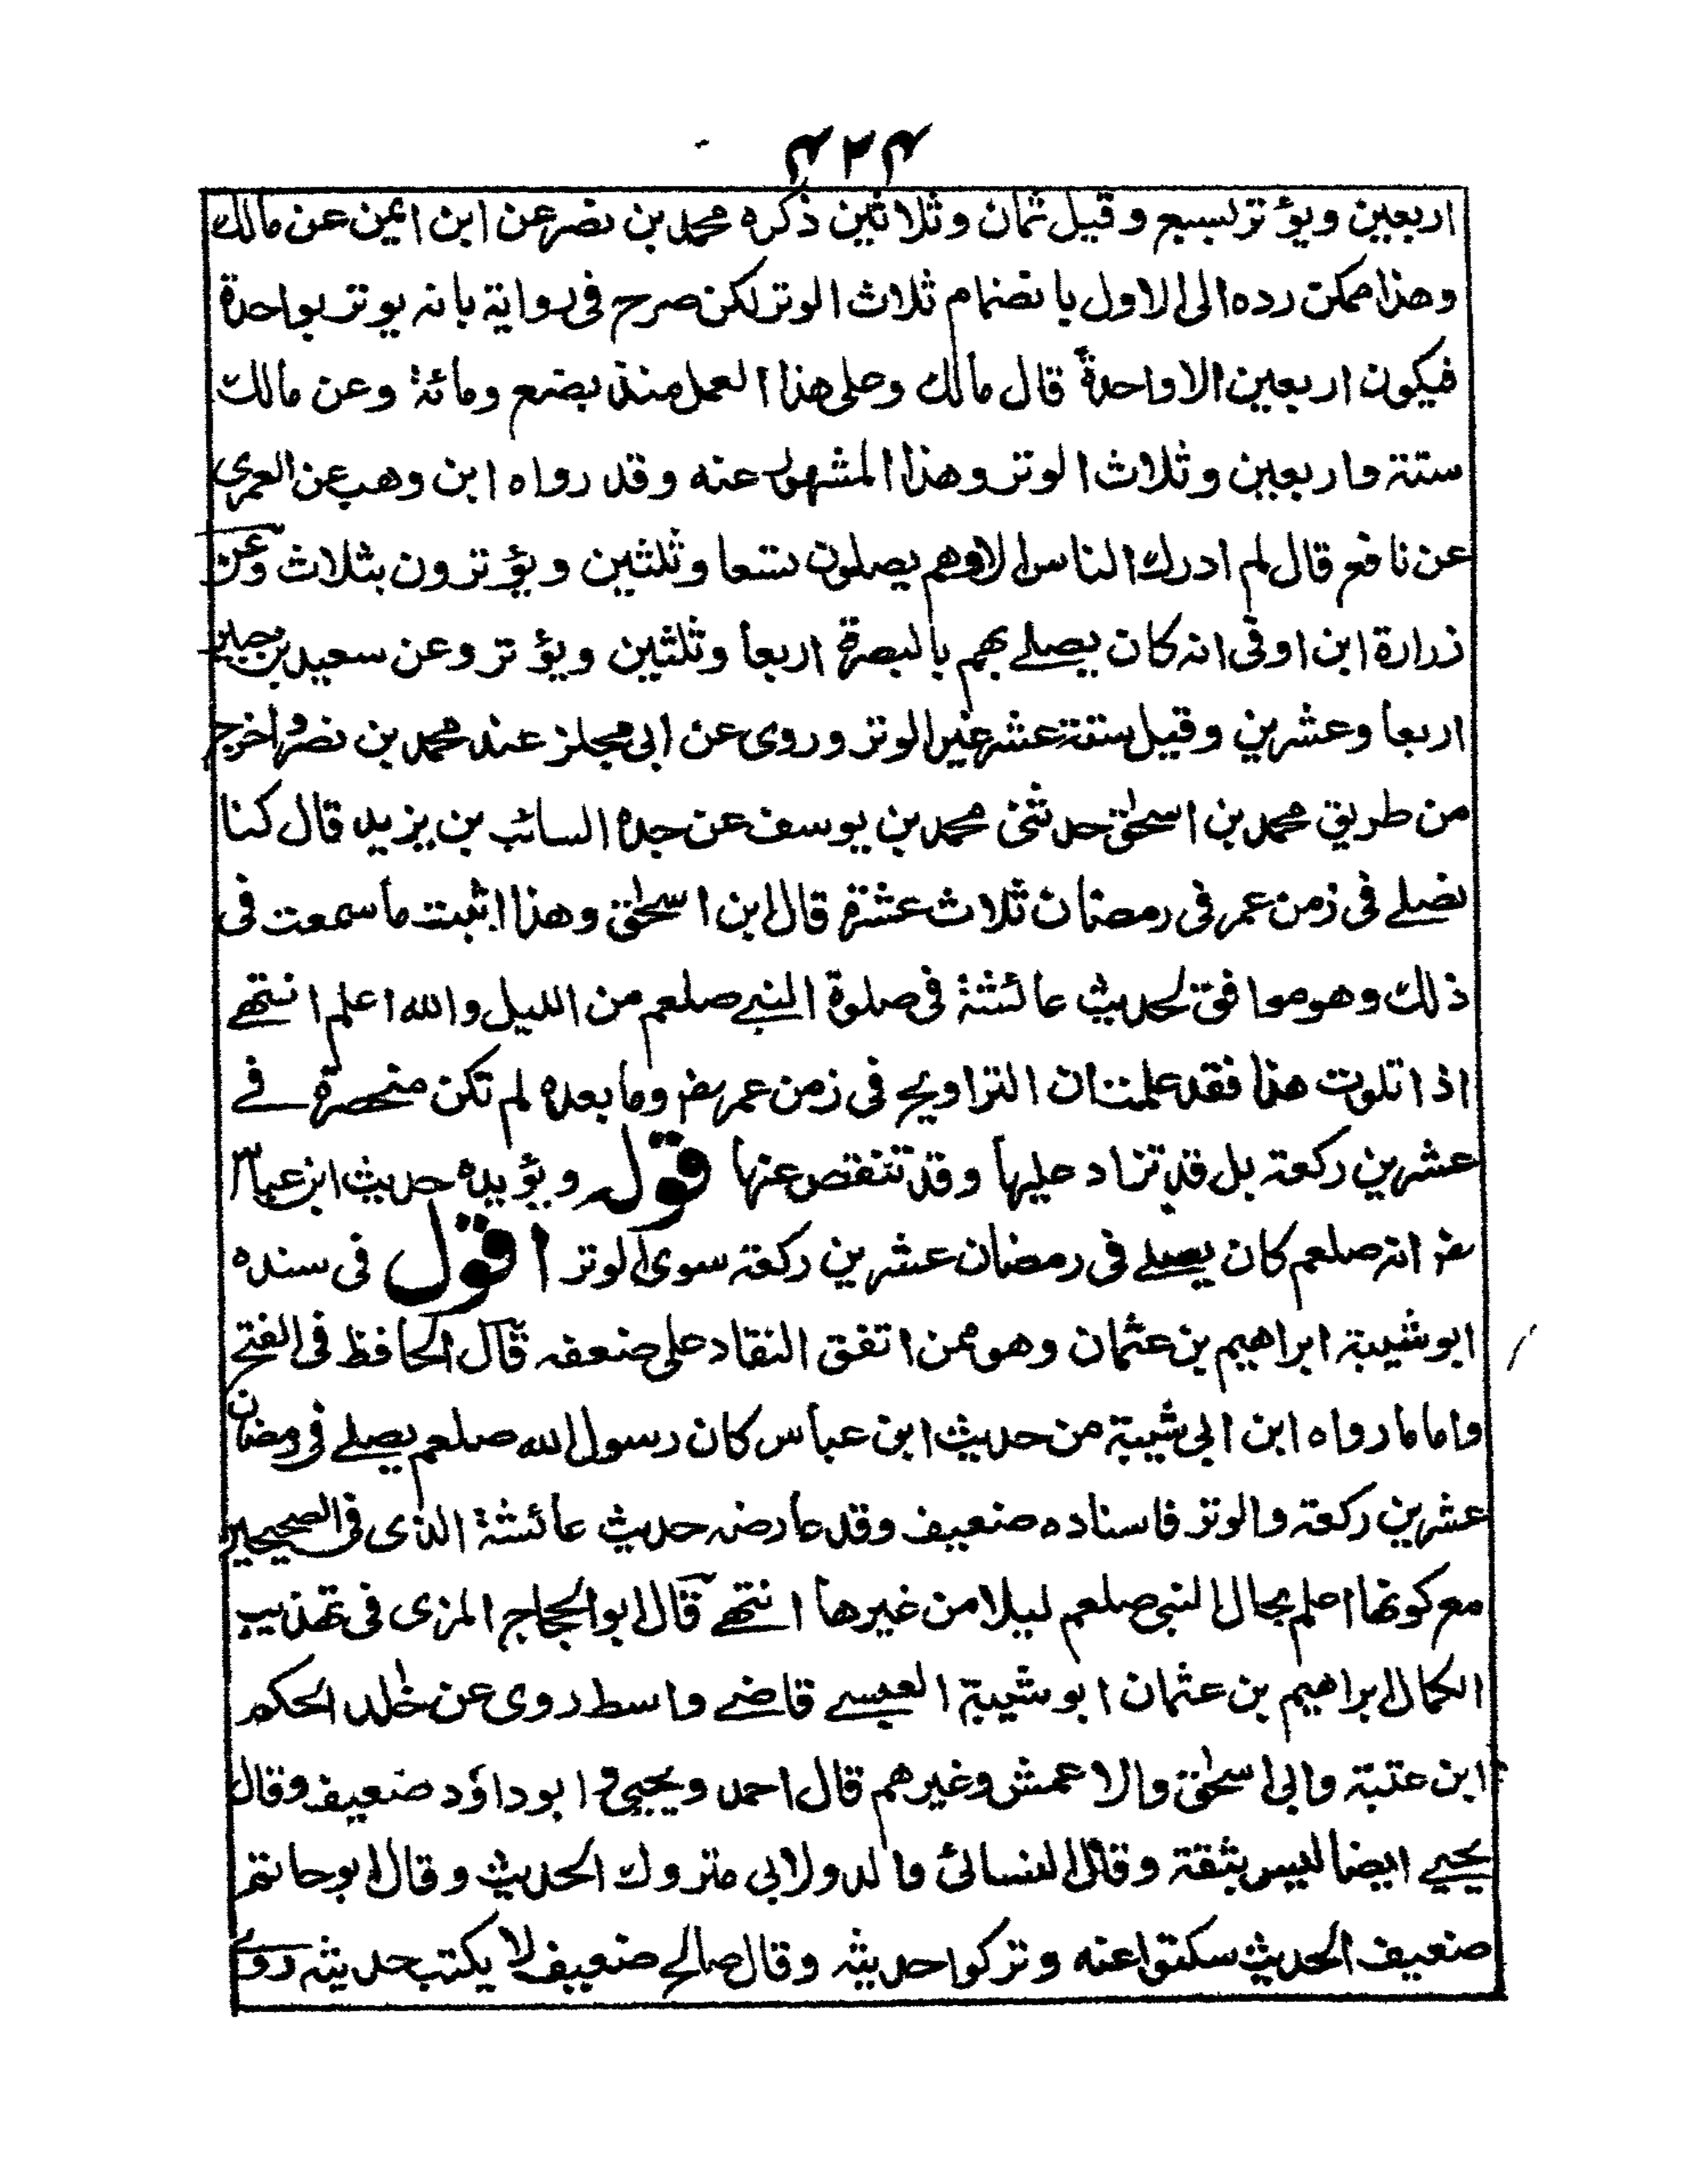 اربعين ويؤتر بسبع وقيل ثمان وثلاثين ذكره محمد بن نصر عن ابن ايمن عن مالك
وهذا ممكن رده الى الاول بانضمام ثلاث الوتر لكن صرح في رواية بانه يوتر بواحدة
فيكون اربعين الا واحدة قال مالك وعلى هذا العمل منذ بضع ومائة وعن مالك
ستة واربعين وثلاث الوتر وهذا المشهور عنه وقد رواه ابن وهب عن العمرى
عن نافع قال لم ادرك الناس الا وهم يصلون تسعا وثلثين ويؤترون بثلاث وعن
زرارة ابن اوفى انه كان يصلے بهم بالبصرة اربعا وثلثين ويؤتر وعن سعيد بن جبير
اربعا وعشرين وقيل ستة عشر غير الوتر وروى عن ابى مجلز عند محمد بن نصر واخرج
من طريق محمد بن اسحٰق حدثنى محمد بن يوسف عن جده السائب بن يزيد قال كنا
نصلے فى زمن عمر فى رمضان ثلاث عشرة قال ابن اسحٰق وهذا اثبت ما سمعت فى
ذلك وهو موافق لحديث عائشة فى صلوة النبے صلعم من الليل والله اعلم انتهے
اذا تلوت هذا فقد علمت ان التراويح فى زمن عمر رض وما بعده لم تكن منحصرة فے
عشرين ركعة بل قد تزاد عليها وقد تنقص عنها قوله ويؤيده حديث ابن عباس
رض انه صلعم كان يصلے فى رمضان عشرين ركعة سوى الوتر اقول فى سنده
ابو شيبة ابراهيم بن عثمان وهو ممن اتفق النقاد على ضعفه قال الحافظ فى الفتح
واما ما رواه ابن ابى شيبة من حديث ابن عباس كان رسول الله صلعم يصلے فى رمضان
عشرين ركعة والوتر فاسناده ضعيف وقد عارضه حديث عائشة الذى فى الصحيحين
مع كونها اعلم بحال النبى صلعم ليلا من غيرها انتهے قال ابو الحجاج المزى فى تهذيب
الكمال ابراهيم بن عثمان ابو شيبة العبسے قاضے واسط روى عن خاله الحكم
ابن عتبة وابى اسحٰق والاعمش وغيرهم قال احمد ويحيى و ابو داؤد ضعيف وقال
يحيے ايضا ليس بثقة وقال النسائى والدولابى متروك الحديث وقال ابو حاتم
ضعيف الحديث سكتوا عنه وتركوا حديثه وقال صالح ضعيف لا يكتب حديثه روى